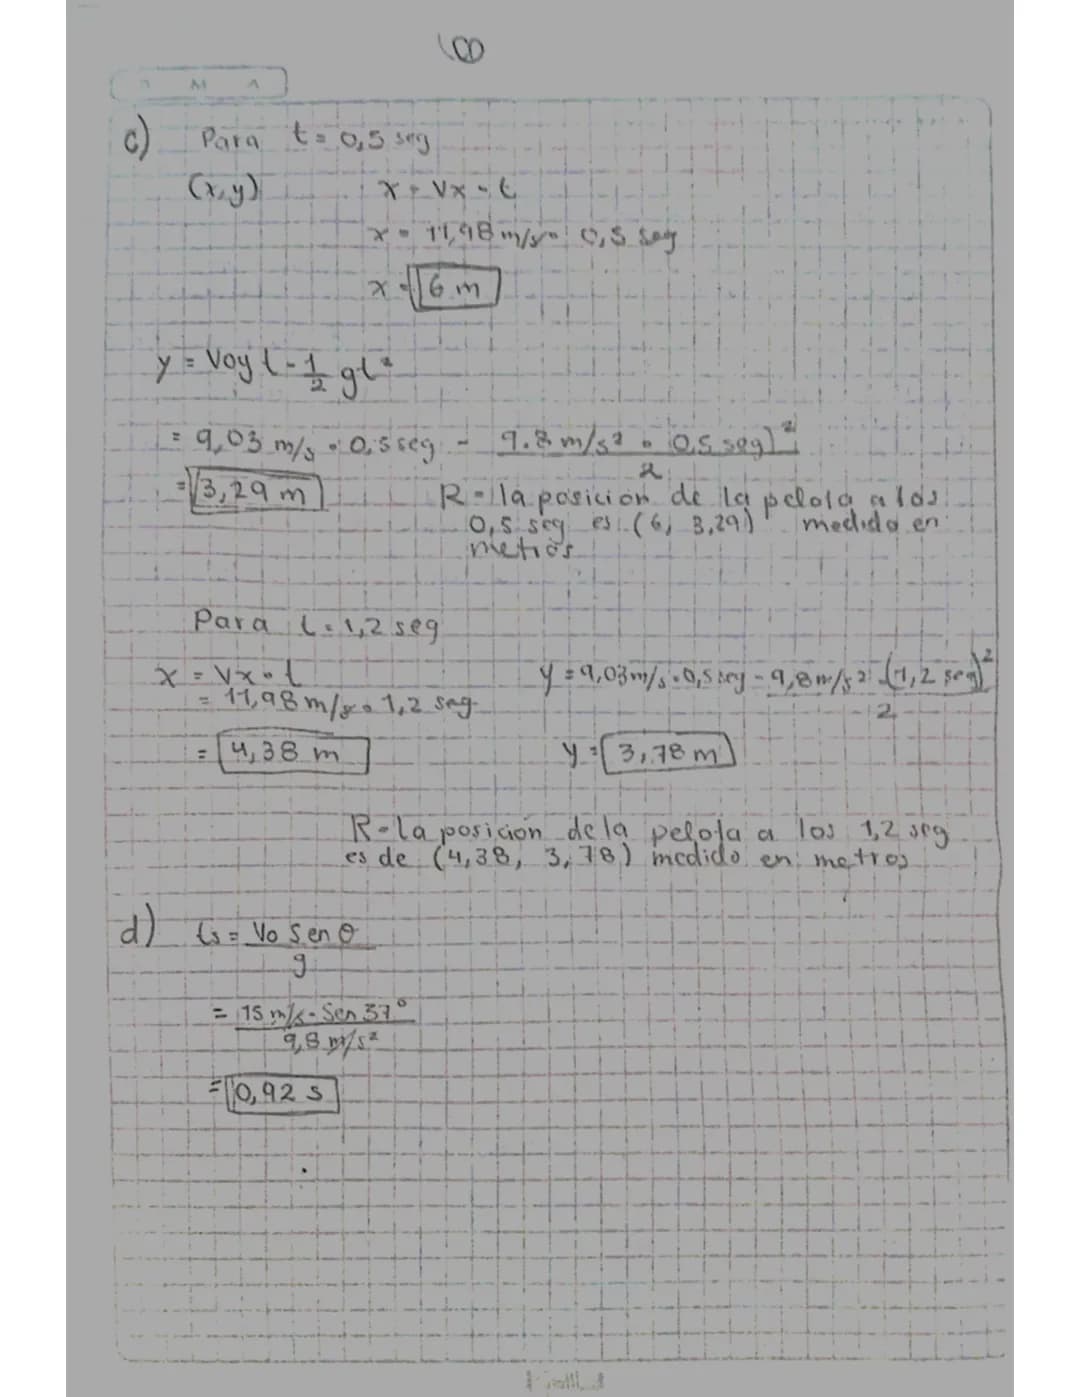 c) Para t = 0,5 seg
(x,y) x = Vx · t
x = 11,98 m/s · 0,5 seg
x = 6 m
y = Voy t - 1/2 gt²
= 9,03 m/s · 0,5 seg - 9.8 m/s² · 0,5 seg)² / 2
= 3,29 m
R = la posición de la pelota a los
0,5 seg es (6, 3,29) medido en
metros
Para t = 1,2 seg
x = Vx · t
= 11,98 m/s · 1,2 seg
= 4,38 m
y = 9,03 m/s · 0,5 seg - 9,8 m/s² · (1,2 seg)² / 2
y = 3,78 m
R = La posición de la pelota a los 1,2 seg
es de (4,38, 3,78) medido en metros
d) ts = Vo Sen θ / g
= 15 m/s · Sen 37° / 9,8 m/s²
= 0,92 s